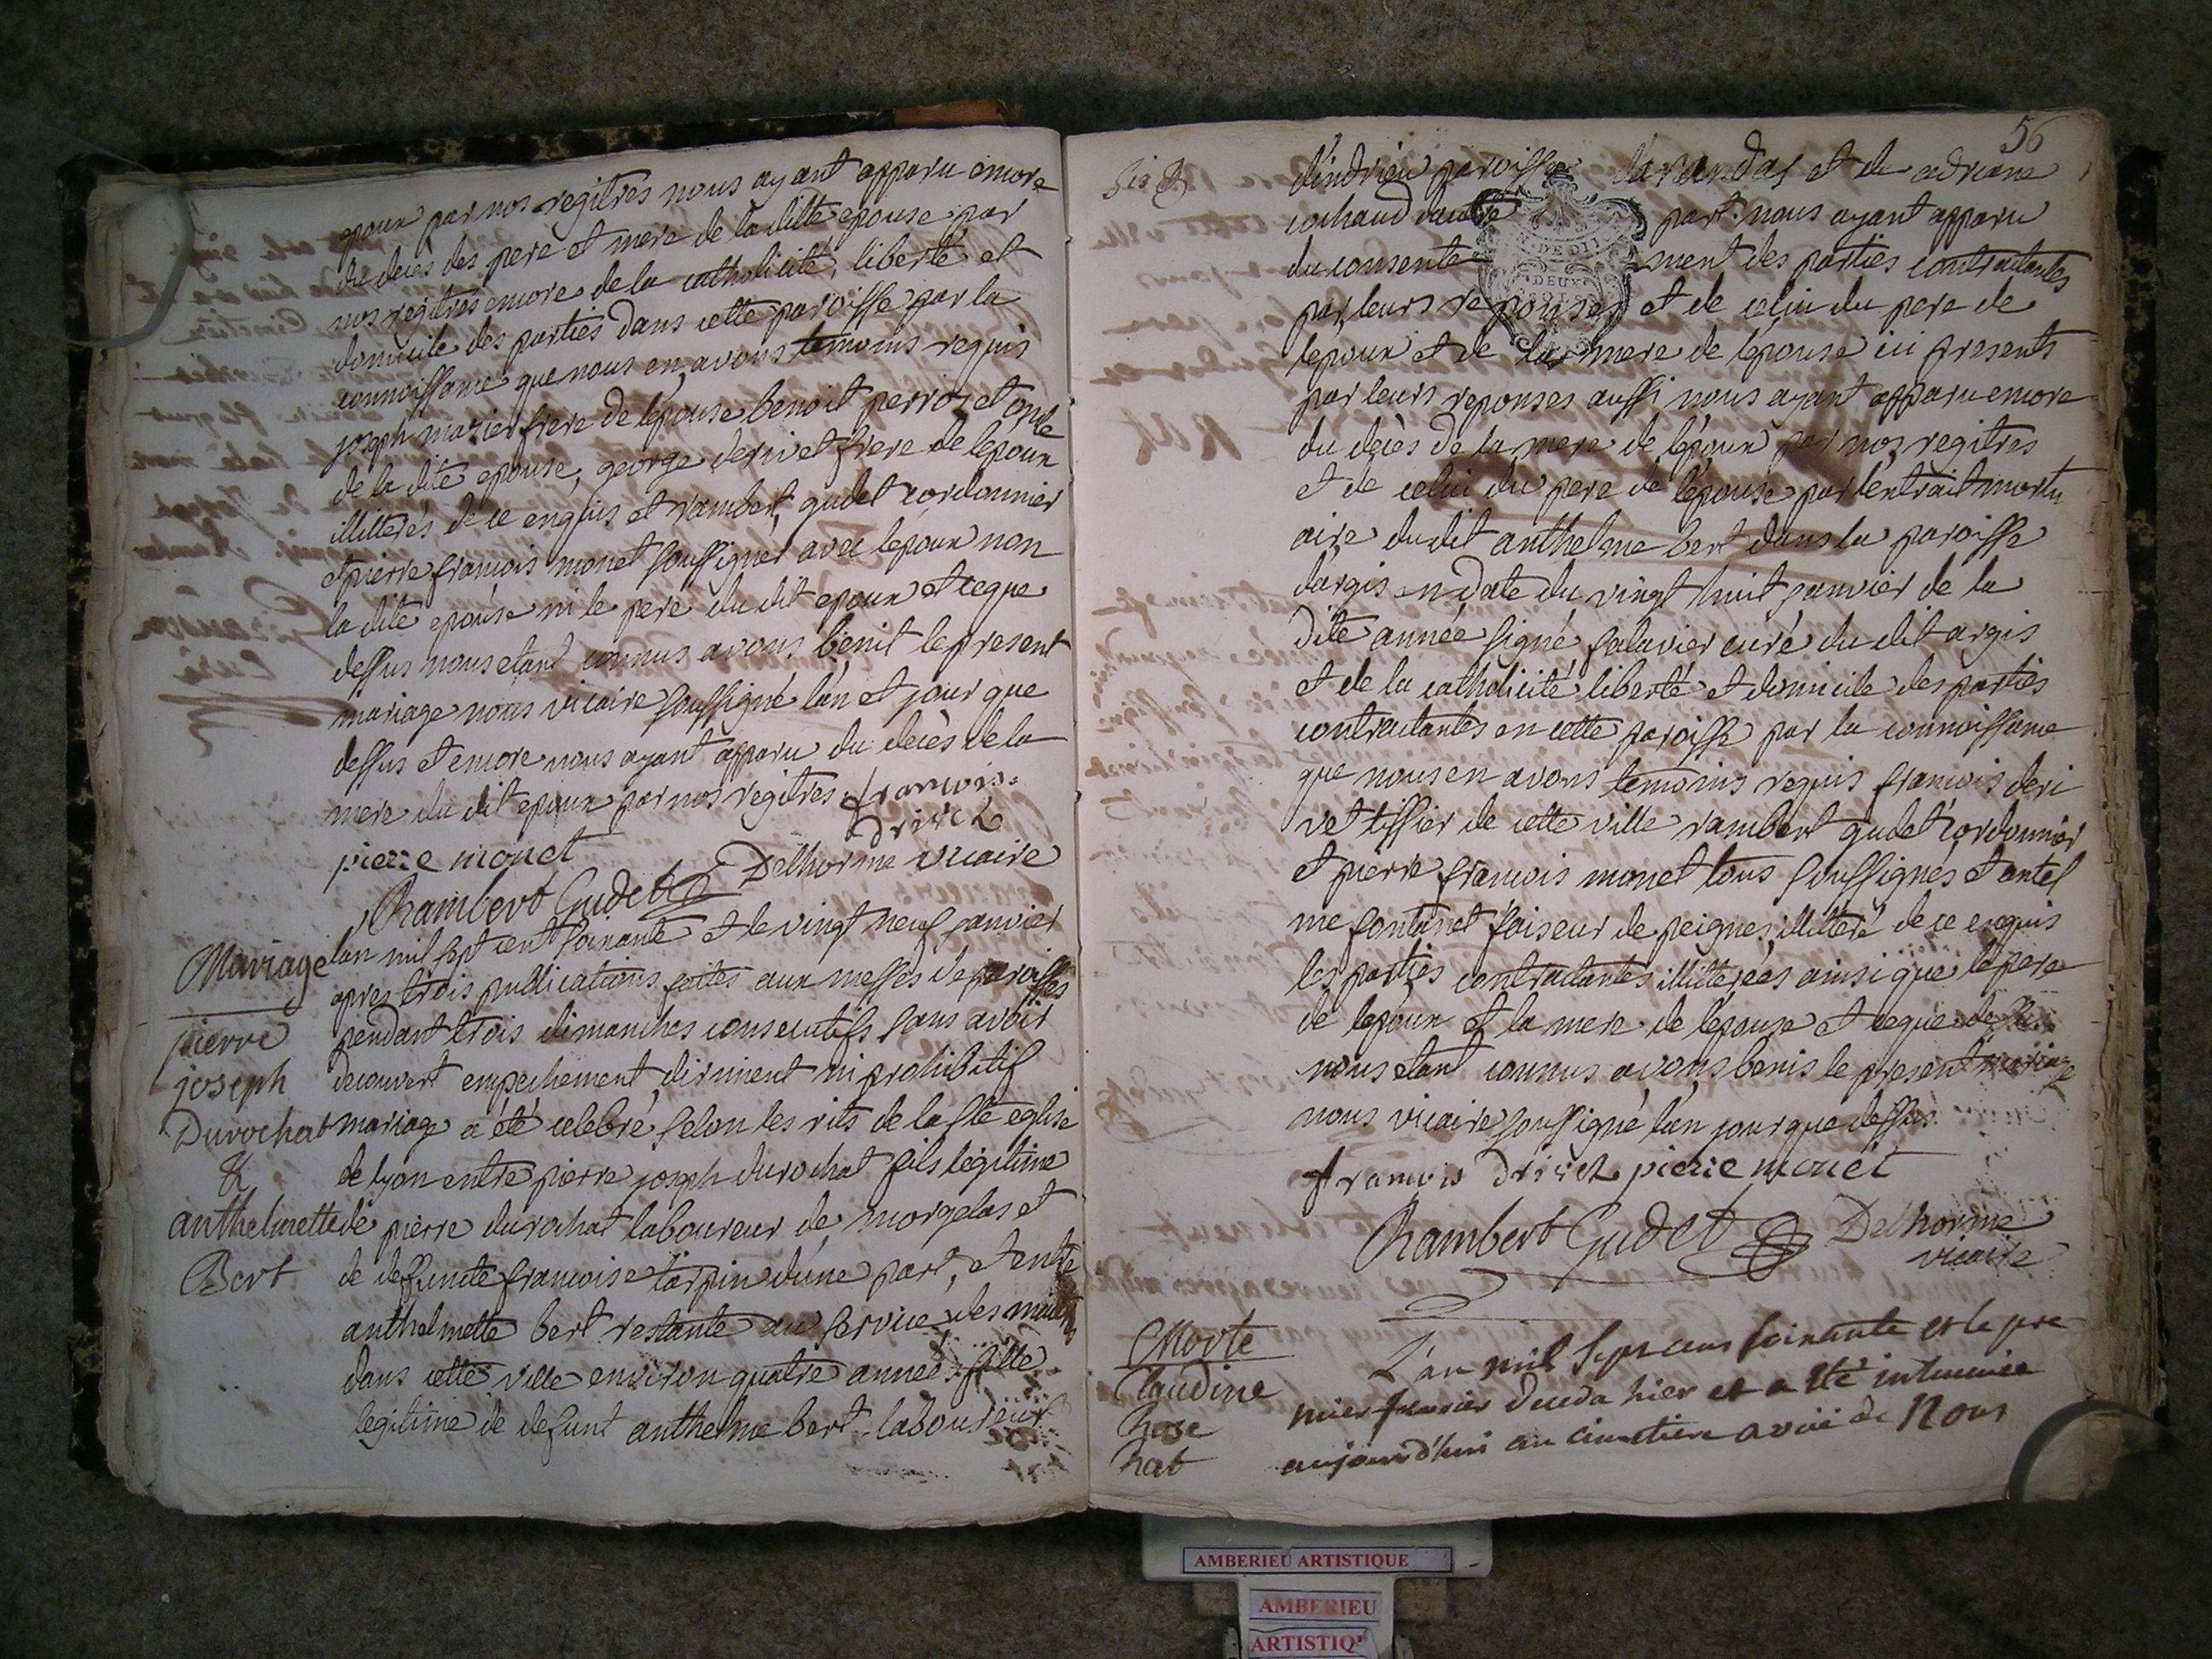 epoux par nos regitres nous ayant apparu encore
du decès des pere et mere de la ditte epouse par
nos regitres encore de la catholicité, liberté et
domicile des parties dans cette paroisse par la
connoissance que nous en avons temoins requis
joseph frere de lepouse benoit perroz et oncle
de la dite epouse, george derivet frere de lepoux
illitterés de ce enquis et rambert gudet cordonnier
et pierre francois monet soussignés avec lepoux non
la dite epouse ni le pere du dit epoux et ce que
dessus nous etant connus avons benit le present
mariage nous vicaire soussigné lan et jour que
dessus et encore nous ayant apparu du decès de la
mere du dit epoux par nos regitres. francois
drivet
pierre monet
Rambert Gudet Delhorme vicaire
Mariage
pierre
joseph
Durochat
&
anthelmette
Bert
lan mil sept cent soixante et le vingt neuf janvier
apres trois publications faites aux messes de paroisses
pendant trois dimanches consecutifs sans avoir
decouvert empechement dirimant ni prohibitif
mariage a été celebré selon les rits de la ste eglise
de lyon entre pierre joseph durochat fils legitime
de pierre durochat laboureur de morgelas et
de deffuncte francoise tarpin d'une part, et entre
anthelmette bert restante au service des
dans cette ville environ quatre années fille
legitime de defunt anthelme bert laboureur
56
d'indrieu paroisse darandas et de adriane
cochaud dautre part. nous ayant apparu
DEUX
du consentement des parties contractantes
par leurs reponses et de celui du pere de
lepoux et de la mere de lepouse ici presents
par leurs reponses aussi nous ayant apparu encore
du decès de la mere de lépoux par nos regitres
et de celui du pere de lepouse par lextrait mortu
aire du dit anthelme bert dans la paroisse
dargis en date du vingt huit janvier de la
dite année signé salavier curé du dit argis
et de la catholicité liberté et domicile des parties
contractantes en cette paroisse par la connoissance
que nous en avons temoins requis francois deri
vet tissier de cette ville rambert gudet cordonnier
et pierre francois monet tous soussignés et antel
me fontanet faiseur de peignes illitteré de ce enquis
les parties contractantes illitterées ainsi que le pere
de lepoux et la mere de lepouse et ce que
nous etant connus avons benis le present mariage
nous vicaire soussigné lan jour que dessus
francois drivet pierre monet
Rambert Gudet Delhorme
vicaire
Morte
Claudine
Rose
hat
L'an mil sept cens soixante et le pre
mier fevrier deceda hier et a été inhumée
aujourd'hui au cimetiere avvié de Nous
AMBERIEU ARTISTIQUE
AMBERIEU
ARTISTIQ